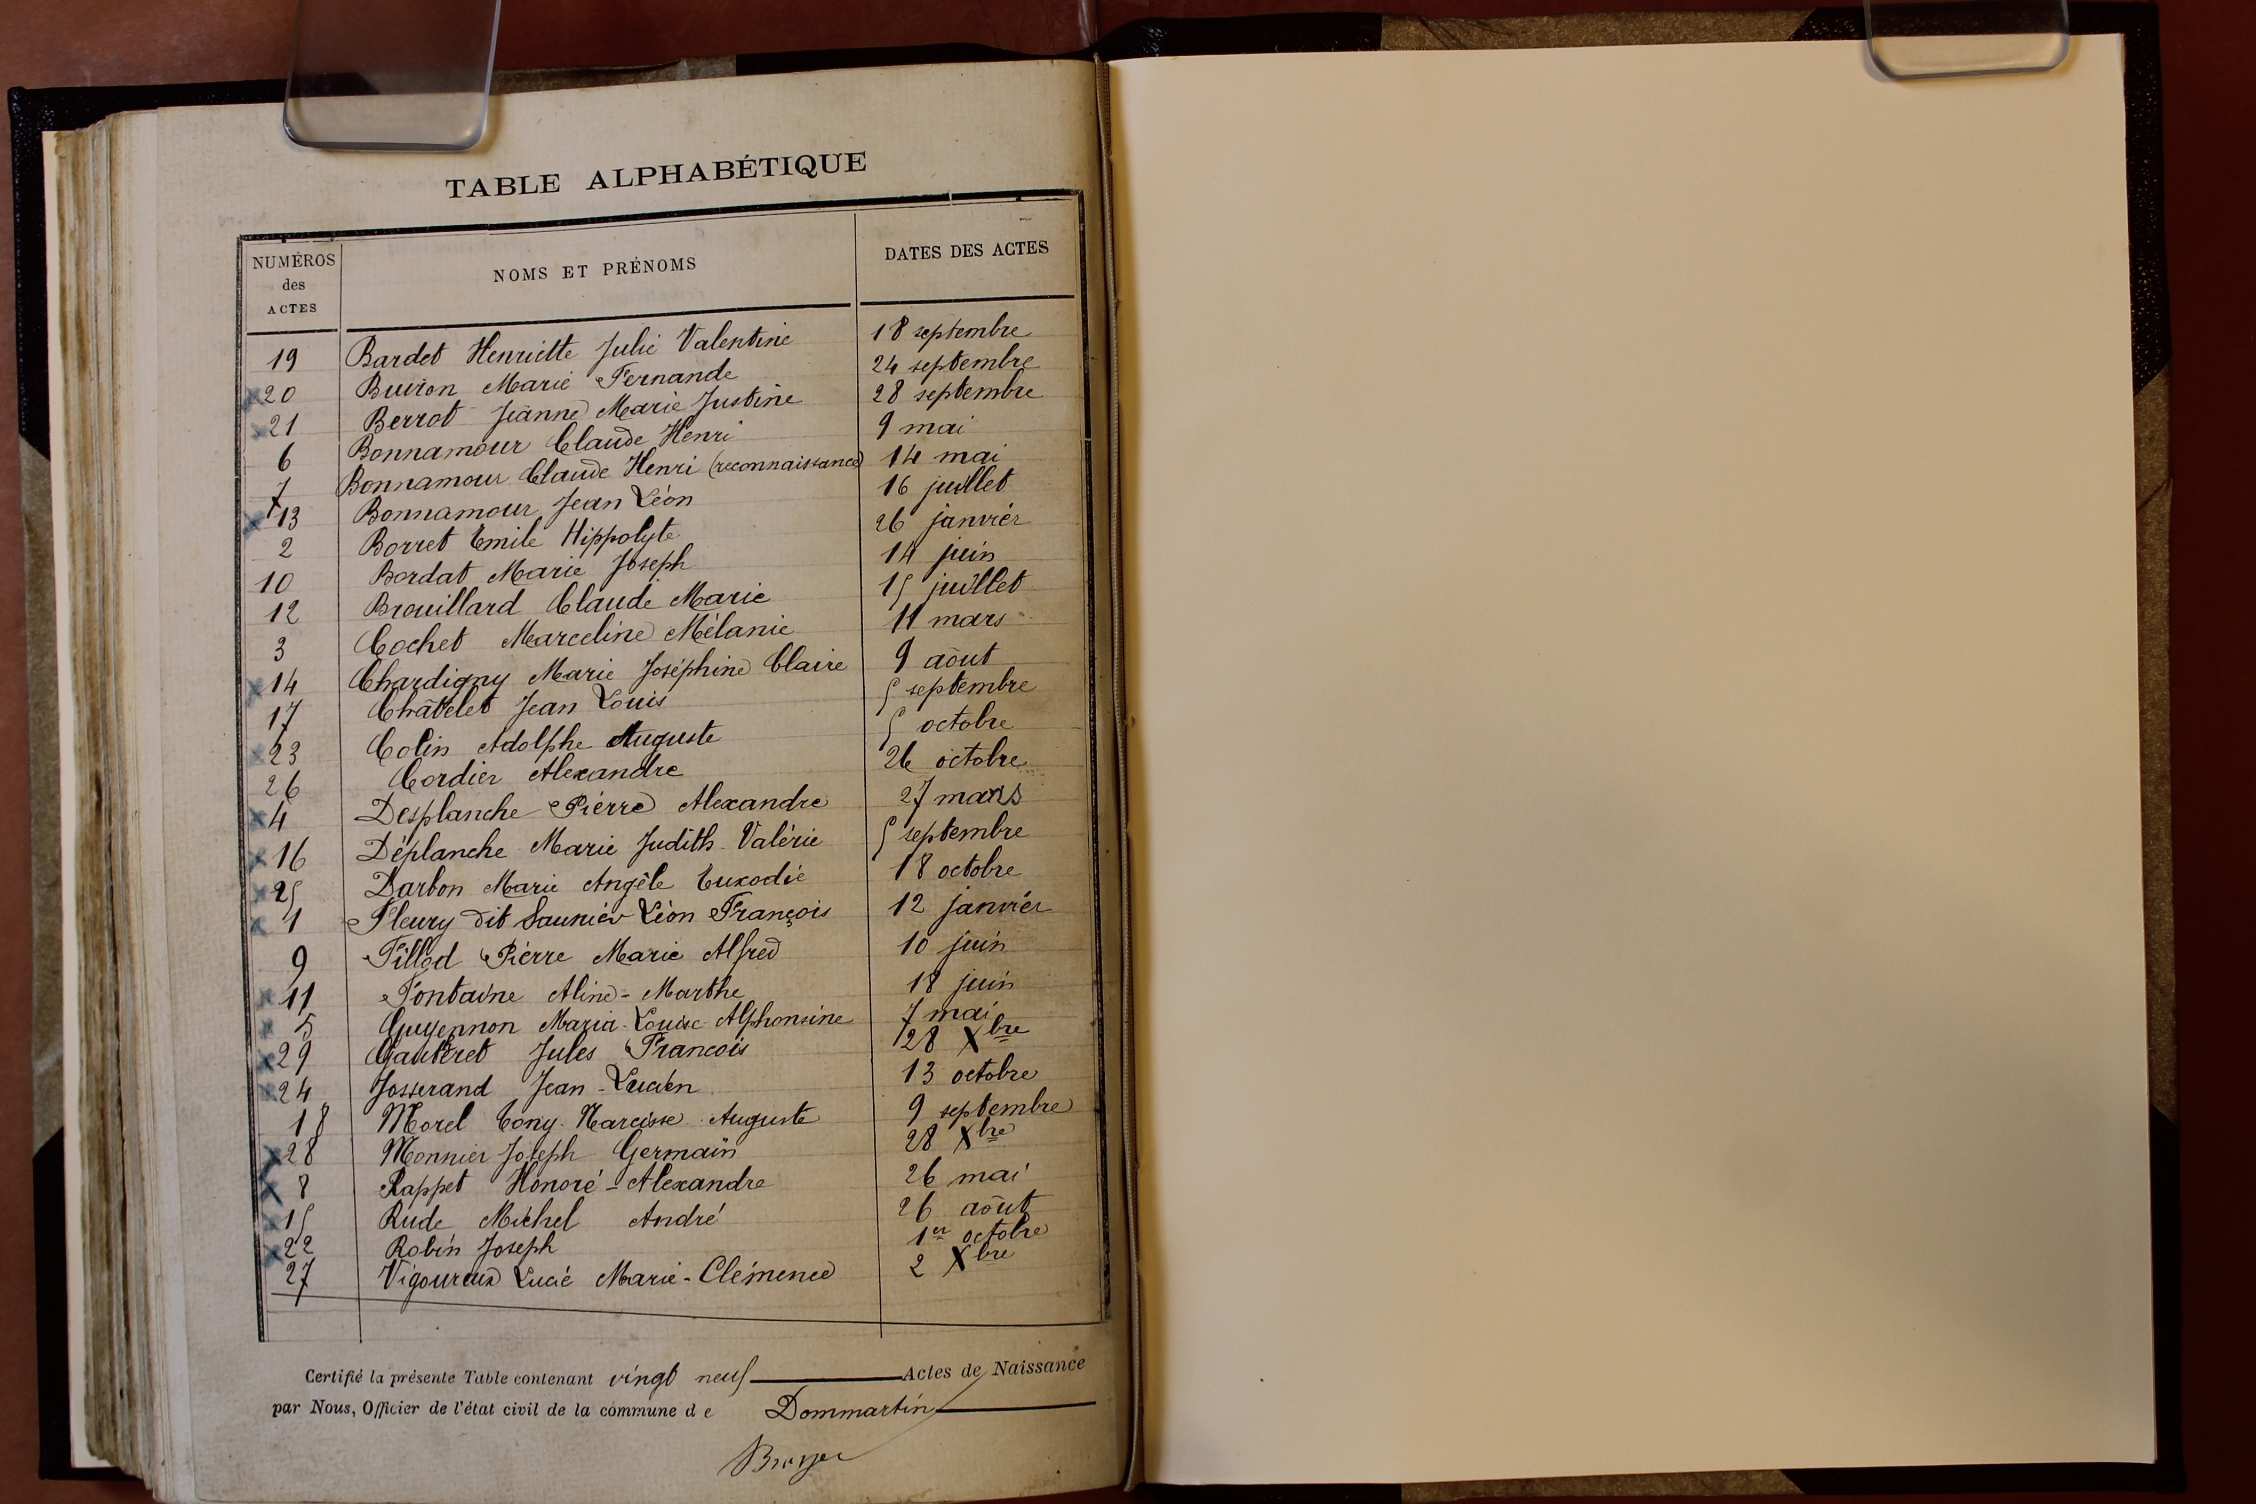 TABLE ALPHABÉTIQUE
NUMÉROS des ACTES NOMS ET PRÉNOMS DATES DES ACTES
19 Bardet Henriette Julie Valentine 18 septembre
x20 Buiron Marie Fernande 24 septembre
x21 Berrot Jeanne Marie Justine 28 septembre
6 Bonnamour Claude Henri 9 mai
7 Bonnamour Claude Henri (reconnaissance) 14 mai
x13 Bonnamour Jean Léon 16 juillet
2 Borret Emile Hippolyte 26 janvier
10 Bordat Marie Joseph 14 juin
12 Brouillard Claude Marie 15 juillet
3 Cochet Marceline Mélanie 11 mars
x14 Chardigny Marie Joséphine Claire 9 aôut
17 Châtelet Jean Louis 5 septembre
x23 Colin Adolphe Auguste 5 octobre
26 Cordier Alexandre 26 octobre
x4 Desplanche Pierre Alexandre 27 mars
x16 Déplanche Marie Judith Valérie 5 septembre
x25 Darbon Marie Angèle Euxodie 18 octobre
x1 Fleury dit Saunier Léon François 12 janvier
9 Fillod Pierre Marie Alfred 10 juin
x11 Fontaine Aline-Marthe 18 juin
x5 Guyennon Maria-Louise Alphonsine 7 mai
x29 Gauteret Jules Francois 28 Xbre
x24 Josserand Jean-Lucien 13 octobre
18 Morel Tony Narcisse Auguste 9 septembre
x28 Monnier Joseph Germain 28 Xbre
x8 Rappet Honoré-Alexandre 26 mai
x15 Rude Michel André 26 aôut
x22 Robin Joseph 1er octobre
27 Vigoureux Lucie Marie-Clémence 2 Xbre
Certifié la présente Table contenant vingt neuf Actes de Naissance
par Nous, Officier de l'état civil de la commune de Dommartin